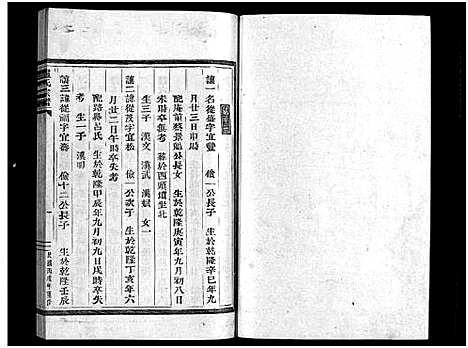 讓一名從臺字宜豐 儉一公長子 生於乾隆辛巳年九
月廿三日申時
配庵前蔡景陽公長女 生於乾隆庚寅年九月初八日
未時卒無考 葬於西頭墳坐北
生三子 漢文 漢武 漢斌 女一
讓二諱從茂字宜松 儉一公次子 生於乾隆丁亥年六
月廿二日午時卒失考
配路縣呂氏 生於乾隆甲辰年九月初九日戌時卒失
考 生一子 漢明
讓三諱從順字宜壽 儉十二公長子 生於乾隆壬辰